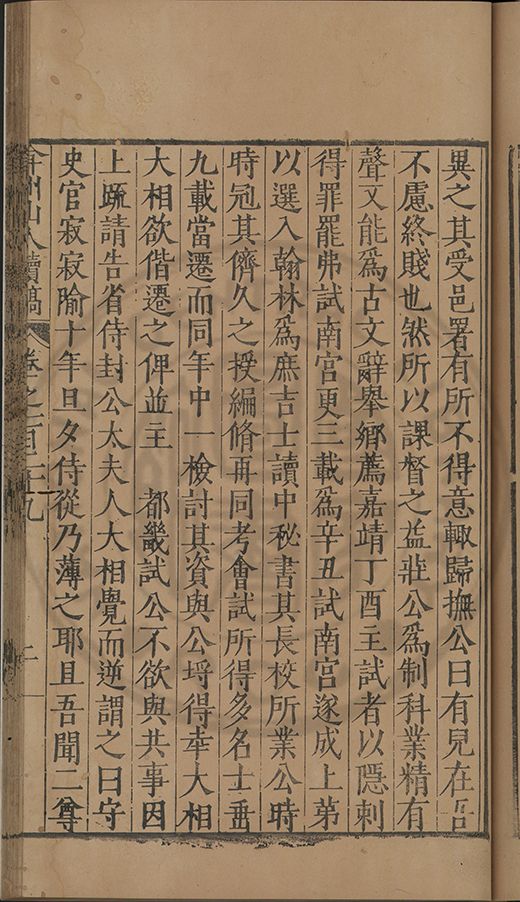 異之其受邑署有所不得意輙歸撫公曰有兒在吾
不慮終賤也然所以課督之益莊公爲制科業精有
聲又能爲古文辭舉鄉薦嘉靖丁酉主試者以隱刺
得罪罷弗試南宮更三載爲辛丑試南宮遂成上第
以選入翰林爲庶吉士讀中秘書其長校所業公時
時冠其儕久之授編脩再同考會試所得多名士垂
九載當遷而同年中一檢討其資與公埒得幸大相
大相欲偕遷之俾並主 都畿試公不欲與共事因
上䟽請告省侍封公太夫人大相覺而逆謂之曰守
史官寂寂隃十年旦夕侍從乃薄之耶且吾聞二尊
弇州山人續稿 卷之一百三十九